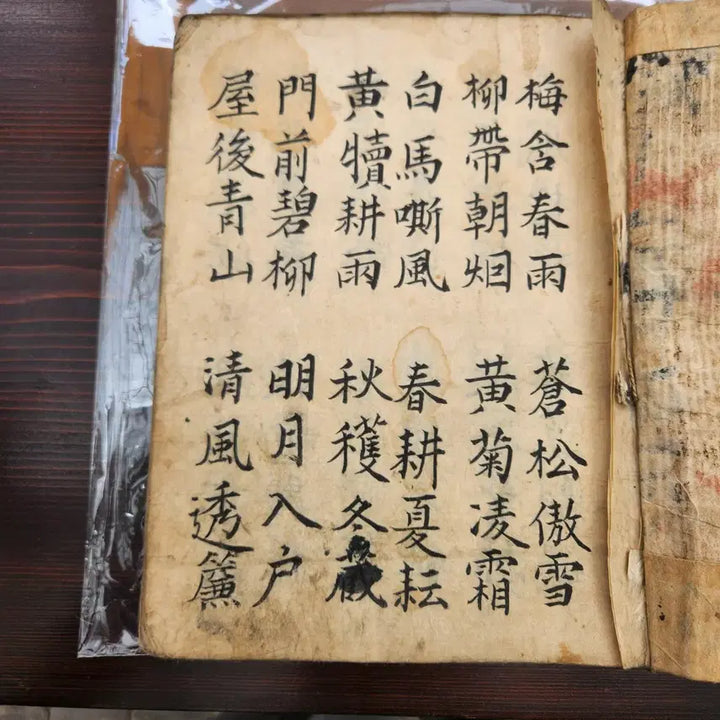 梅含春雨　蒼松傲雪
柳帶朝烟　黃菊凌霜
白馬嘶風　春耕夏耘
黃犢耕雨　秋穫冬藏
門前碧柳　明月入户
屋後青山　清風透簾